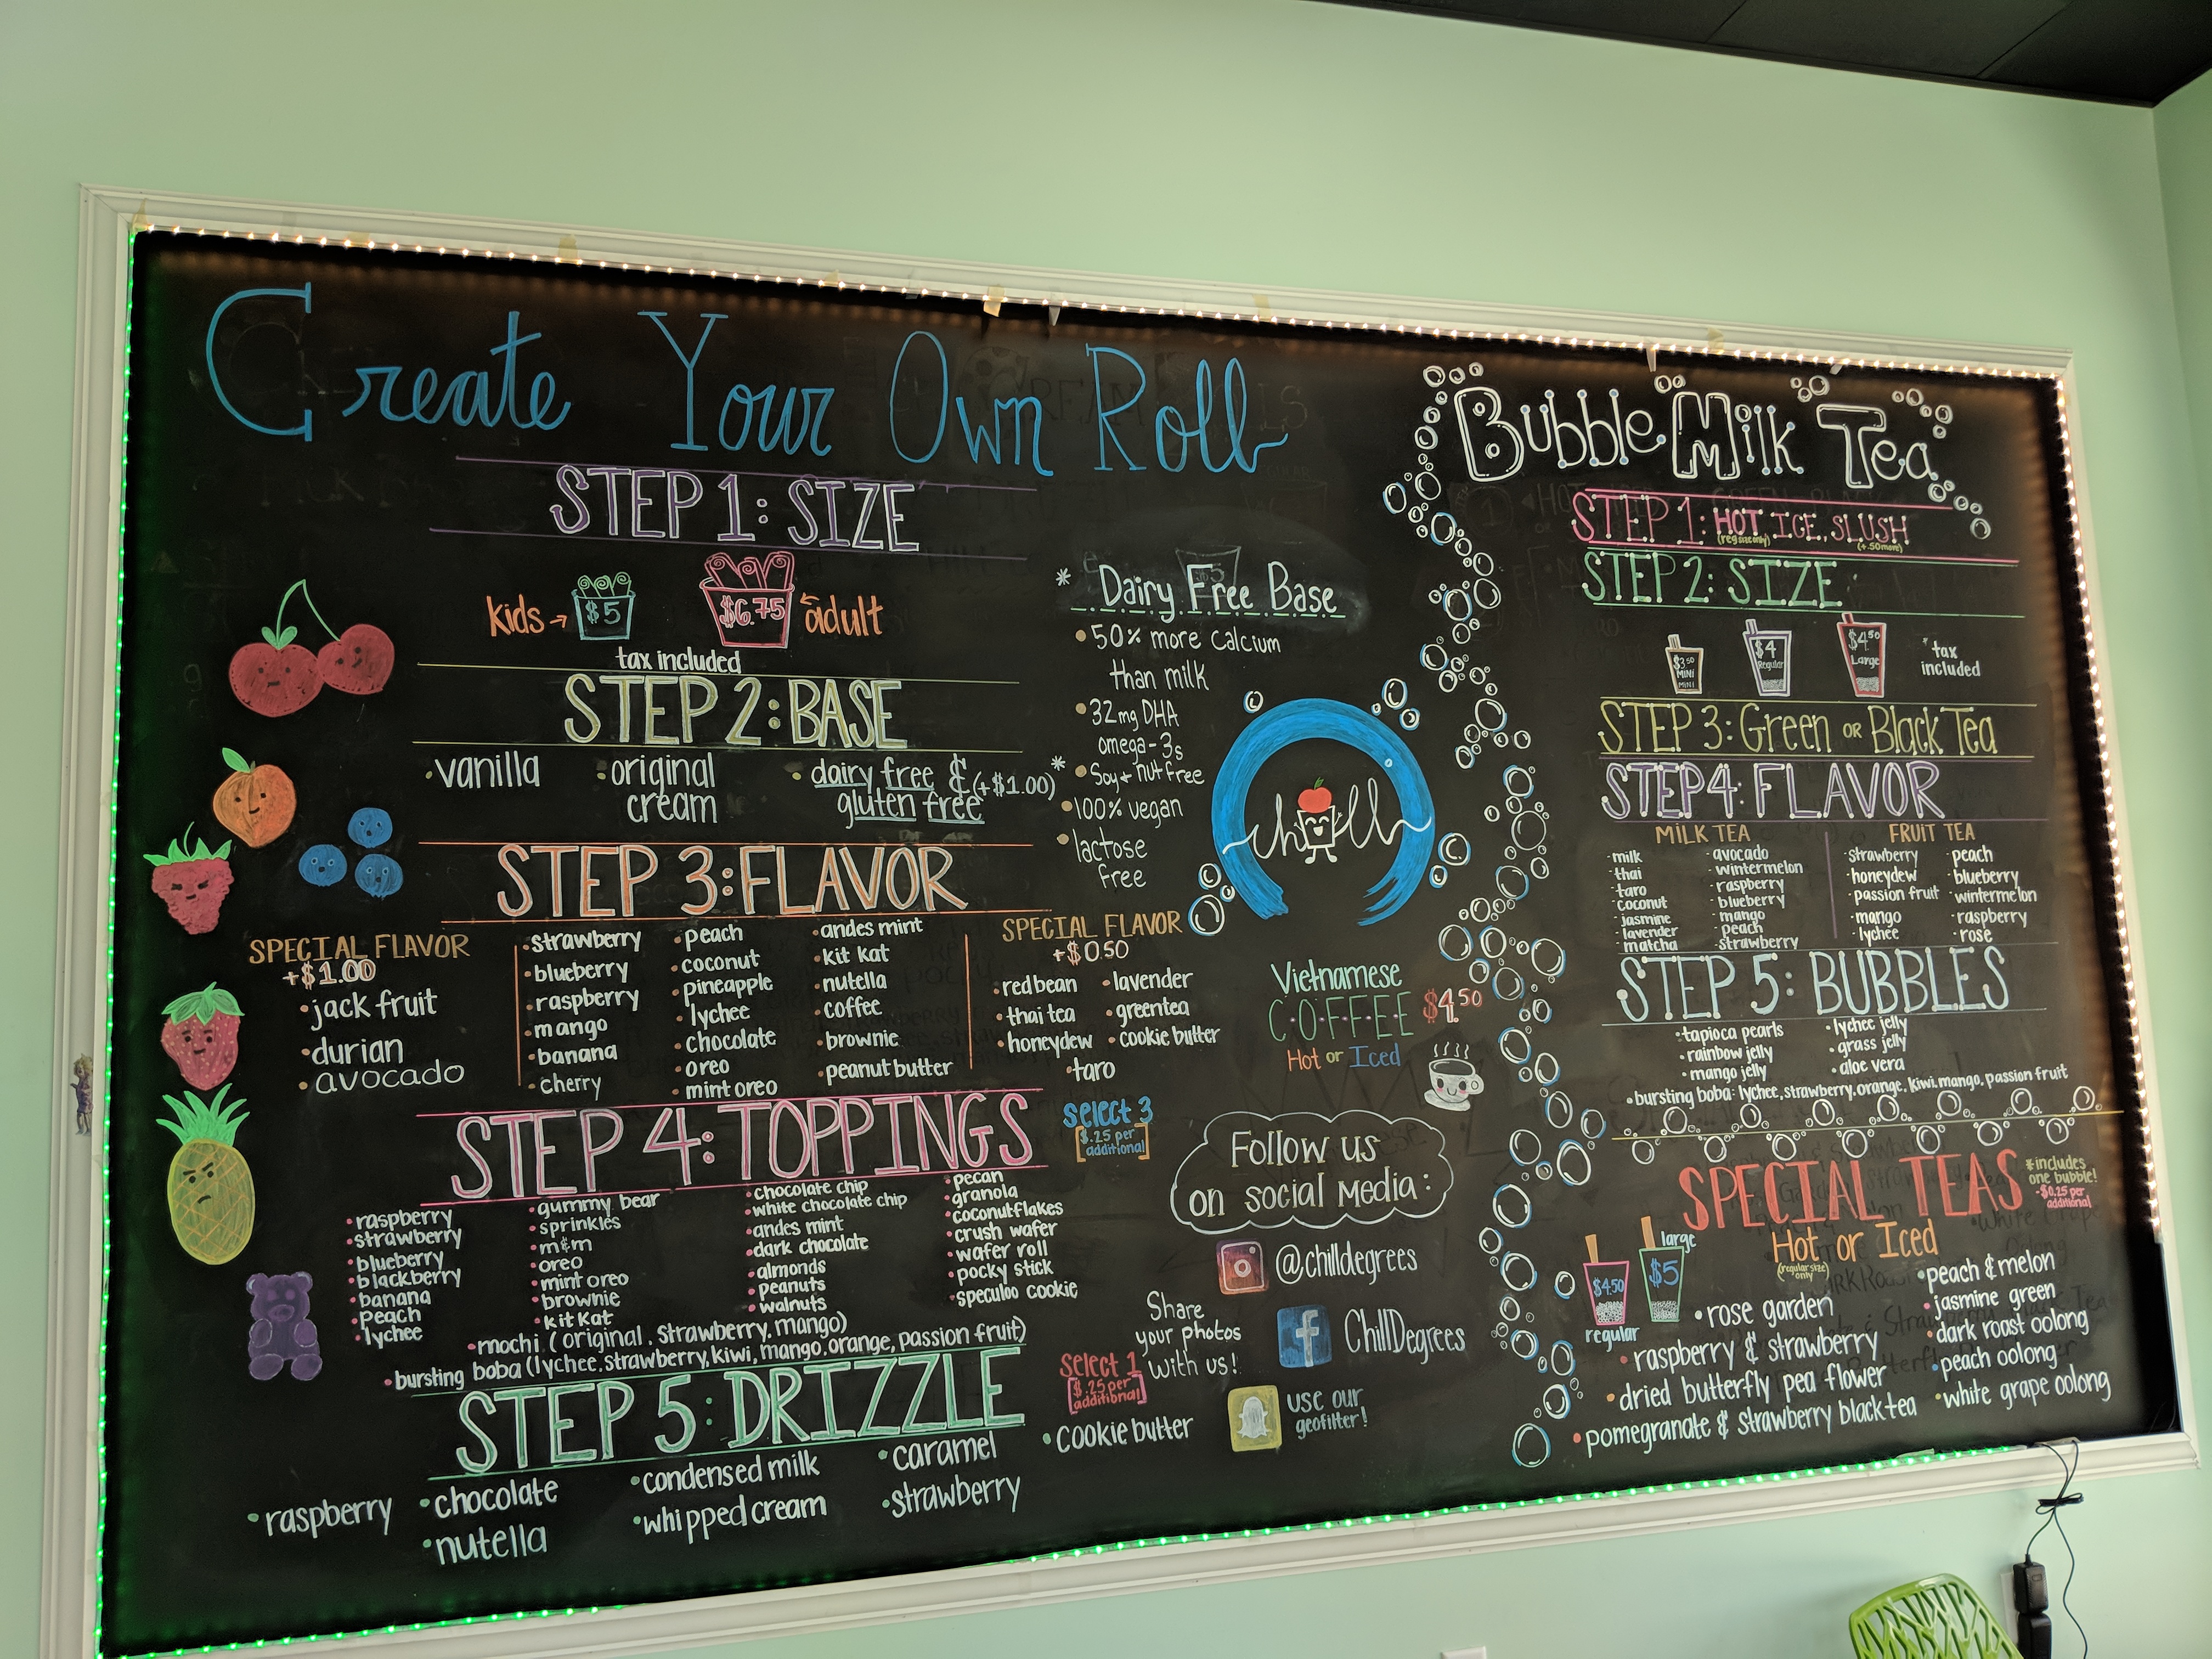 Create Your Own Roll
STEP 1: SIZE
kids → $5
$6.75 ← adult
tax included
STEP 2: BASE
• vanilla
• original cream
• dairy free & gluten free (+$1.00) *
STEP 3: FLAVOR
SPECIAL FLAVOR
+$1.00
• jack fruit
• durian
• avocado
• strawberry
• blueberry
• raspberry
• mango
• banana
• cherry
• peach
• coconut
• pineapple
• lychee
• chocolate
• oreo
• mint oreo
• andes mint
• kit kat
• nutella
• coffee
• brownie
• peanut butter
SPECIAL FLAVOR
+$0.50
• red bean
• thai tea
• honeydew
• lavender
• greentea
• cookie butter
• taro
STEP 4: TOPPINGS
select 3
[$.25 per additional]
• raspberry
• strawberry
• blueberry
• blackberry
• banana
• peach
• lychee
• gummy bear
• sprinkles
• m&m
• oreo
• mint oreo
• brownie
• kit kat
• chocolate chip
• white chocolate chip
• andes mint
• dark chocolate
• almonds
• peanuts
• walnuts
• pecan
• granola
• coconut flakes
• crush wafer
• wafer roll
• pocky stick
• speculoo cookie
• mochi (original, strawberry, mango)
• bursting boba (lychee, strawberry, kiwi, mango, orange, passion fruit)
STEP 5: DRIZZLE
select 1
[$.25 per additional]
• raspberry
• chocolate
• nutella
• condensed milk
• whipped cream
• caramel
• strawberry
• cookie butter
* Dairy Free Base
• 50% more calcium
than milk
• 32mg DHA
omega-3s
• Soy + nut free
• 100% vegan
• lactose
free
chill
Vietnamese
COFFEE $4.50
Hot or Iced
Follow us
on social media:
@chilldegrees
ChillDegrees
Share
your photos
with us!
USE our
geofilter!
Bubble Milk Tea
STEP 1: HOT, ICE, SLUSH
(reg size only)
(+.50 more)
STEP 2: SIZE
$3.50 MINI MINI
$4 Regular
$4.50 Large
* tax
included
STEP 3: Green OR Black Tea
STEP 4: FLAVOR
MILK TEA
- milk
- thai
- taro
- coconut
- jasmine
- lavender
- matcha
- avocado
- wintermelon
- raspberry
- blueberry
- mango
- peach
- strawberry
FRUIT TEA
- strawberry
- honeydew
- passion fruit
- mango
- lychee
- peach
- blueberry
- wintermelon
- raspberry
- rose
STEP 5: BUBBLES
• tapioca pearls
• rainbow jelly
• mango jelly
• lychee jelly
• grass jelly
• aloe vera
• bursting boba: lychee, strawberry, orange, kiwi, mango, passion fruit
SPECIAL TEAS
* includes
one bubble!
-$0.25 per
additional
Hot or Iced
(regular size only)
$4.50 regular
large $5
• rose garden
• raspberry & strawberry
• dried butterfly pea flower
• pomegranate & strawberry black tea
• peach & melon
• jasmine green
• dark roast oolong
• peach oolong
• white grape oolong